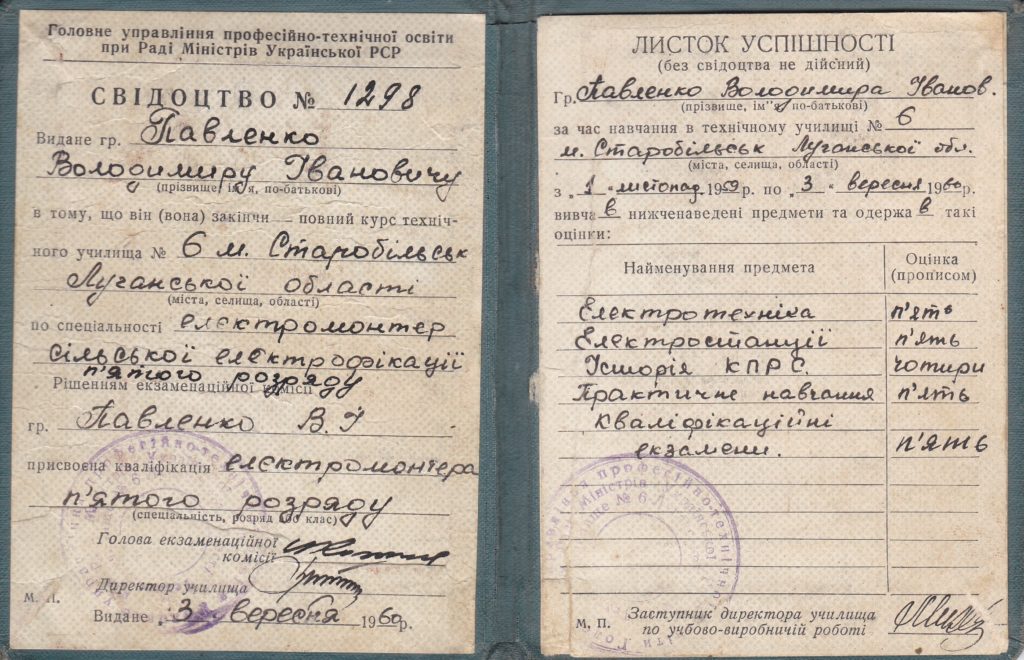 Головне управління професійно-технічної освіти
при Раді Міністрів Української РСР
СВІДОЦТВО № 1298
Видане гр. Павленко
Володимиру Івановичу
(прізвище, ім'я, по-батькові)
в тому, що він (вона) закінчи — повний курс техніч-
ного училища № 6 м. Старобільськ
Луганської області
(міста, селища, області)
по спеціальності електромонтер
сільської електрофікації
п'ятого розряду
Рішенням екзаменаційної комісії
гр. Павленко В.І
присвоєна кваліфікація електромонтера
п'ятого розряду
(спеціальність, розряд або клас)
Голова екзаменаційної
комісії
Директор училища
М. П.
Видане „3„ вересня 1960р.
ЛИСТОК УСПІШНОСТІ
(без свідоцтва не дійсний)
Гр. Павленко Володимира Іванов.
(прізвище, ім"я, по-батькові)
за час навчання в технічному училищі № 6
м. Старобільськ Луганської обл.
(міста, селища, області)
з „1„ листопад 1959 р. по „3„ вересня 1960р.
вивча в нижченаведені предмети та одержа в такі
оцінки:
Найменування предмета Оцінка
(прописом)
Електротехніка п'ять
Електростанції п'ять
Історія КПРС. чотири
Практичне навчання п'ять
Кваліфікаційні
екзамени. п'ять
Заступник директора училища
М. П. по учбово-виробничій роботі